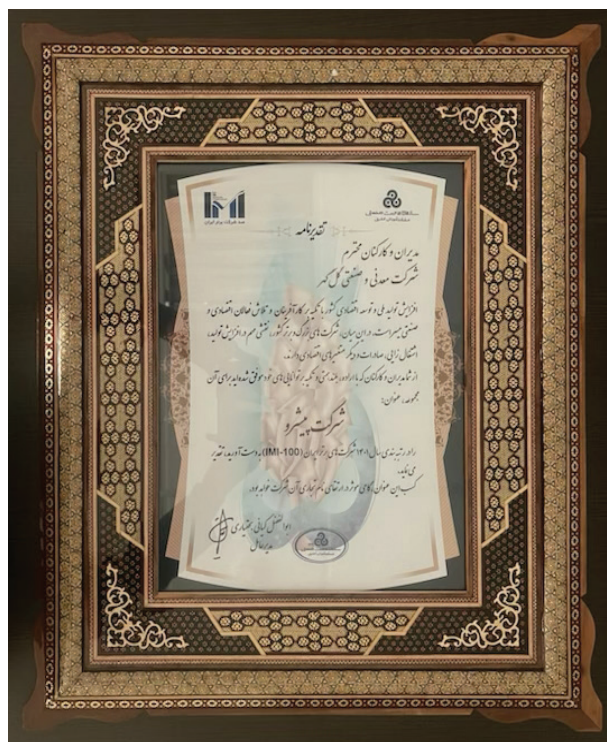 IMI
صد شرکت برتر ایران
سازمان مدیریت صنعتی
تقدیرنامه
مدیران و کارکنان محترم
شرکت معدنی و صنعتی گل گهر
افزایش تولید ملی و توسعه اقتصادی کشور با تکیه بر کارآفرینان و تلاش فعالان اقتصادی و
صنعتی میسر است. در این میان، شرکت های بزرگ و برتر کشور، نقشی مهم در افزایش تولید،
اشتغال زایی، صادرات و دیگر متغیرهای اقتصادی دارند.
از شما مدیران و کارکنان که با اراده، بلندهمتی و تکیه بر توانایی های خود موفق شده اید برای آن
مجموعه، عنوان:
شرکت پیشرو
را در رتبه بندی سال ۱۴۰۱ شرکت های برتر ایران (IMI-100) به دست آورید، تقدیر
می نماید.
کسب این عنوان، گامی موثر در ارتقای نام تجاری آن شرکت خواهد بود.
ابوالفضل کیانی بختیاری
مدیرعامل